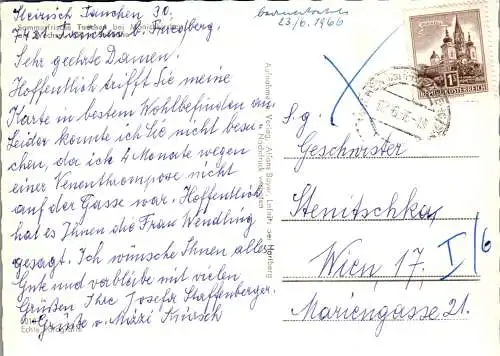 Heinrich Tauchen 30.
beantwortet
23/6. 1966
7421 Tauchen b. Friedberg.
Sehr geehrte Damen.
Hoffentlich trifft Sie meine
Karte in bestem Wohlbefinden an.
Leider konnte ich Sie nicht besu-
chen, da ich 4 Monate wegen
einer Venenthrompose nicht
auf der Gasse war. Hoffentlich
hat es Ihnen die Frau Wendling
gesagt. Ich wünsche Ihnen alles
Gute und verbleibe mit vielen
Grüßen. Ihre Josefa
Grüße v. Mizzi
Echte
Aufnahme u. Verlag
REPUBLIK ÖSTERREICH
S.g.
Geschwister
Stenitschka,
Wien, 17.
I/6
Mariengasse 21.